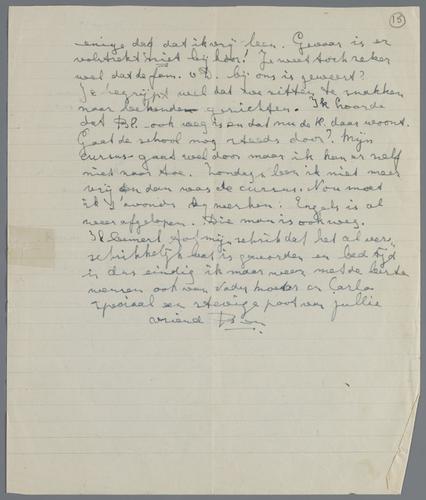 15
enige dag dat ik vrij ben. Gevaar is er
volstrekt niet bij hoor! Je weet toch zeker
wel dat de fam. v.D. bij ons is geweest?
Je begrijpt wel dat we zitten te snakken
naar bekende gezichten. Ik hoorde
dat B.P. ook weg is en dat nu de H. daar woont.
Gaat de school nog steeds door? Mijn
cursus gaat wel door maar ik kan er zelf
niet naar toe. Zondags ben ik niet meer
vrij en dan was de cursus. Nou moet
ik 's avonds werken. Engels is al
weer afgelopen. Die man is ook weg.
Ik bemerk tot mijn schrik dat het al ver-
schrikkelijk laat is geworden en bed tijd
is dus eindig ik maar weer met de beste
wensen ook van Vader moeder en Carla
speciaal een stevige poot van jullie
vriend